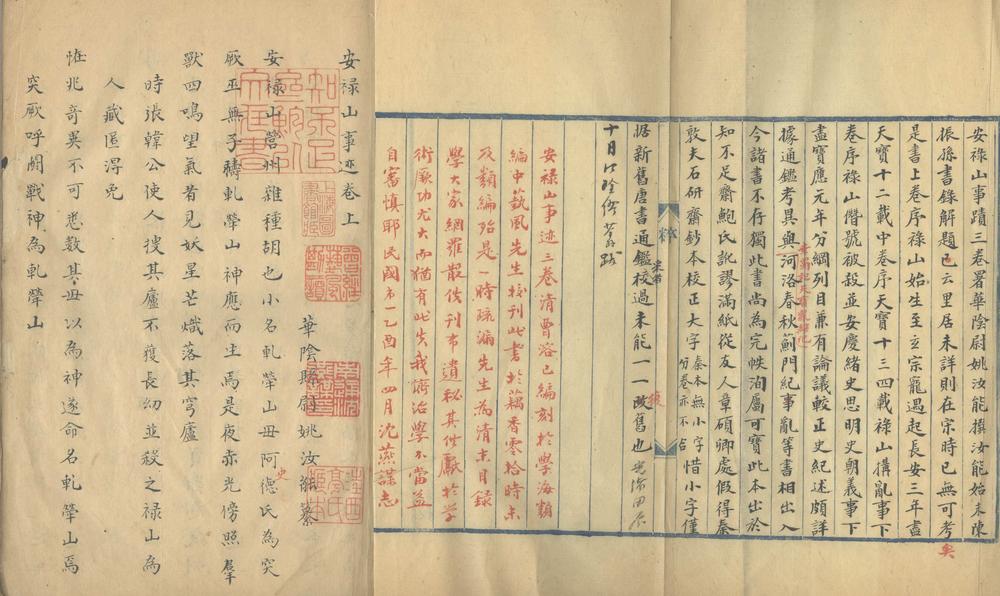 安祿山事蹟三卷署華陰尉姚汝能撰汝能始末陳
振孫書錄解題已云里居未詳則在宗時已無可考矣
是書上卷序祿山始生至玄宗寵遇起長安三年盡
天寶十二載中卷序天寶十三四載祿山搆亂事下
卷序祿山僭號被殺並安慶緒史思明史朝義事下
盡寶應元年分綱列目兼有論議較正史紀述頗詳
據通鑑考異與河洛春秋薊門紀事亂等書相出入
今諸書不存獨此書尚為完帙洵屬可寶此本出於
知不足齋鮑氏訛謬滿紙從友人章碩卿處假得秦
敦夫石研齋鈔本校正大字秦本無小字分卷亦不合惜小字僅
据新舊唐書通鑑校過未能一一改舊也光緒
十月江陰繆
安祿山事迹三卷清曹溶已編刻於學海類
編中蓺風先生校刊此書於藕香零拾時未
及類編殆是一時疏漏先生為清末目錄
學大家網羅散佚刊布遺秘其供獻於學
術厥功尤大而猶有此失我儕治學不當益
自審慎耶民國卅一乙酉年四月沈燕謀志
安祿山事迹卷上
華陰縣尉姚汝能纂
安祿山營州雜種胡也小名軋犖山母阿德氏為突
厥巫無子禱軋犖山神應而生焉是夜赤光傍照羣
獸四鳴望氣者見妖星芒熾落其穹廬
時張韓公使人搜其廬不獲長幼並殺之祿山為
人藏匿得免
怪兆奇異不可悉數其母以為神遂命名軋犖山焉
突厥呼鬭戰神為軋犖山